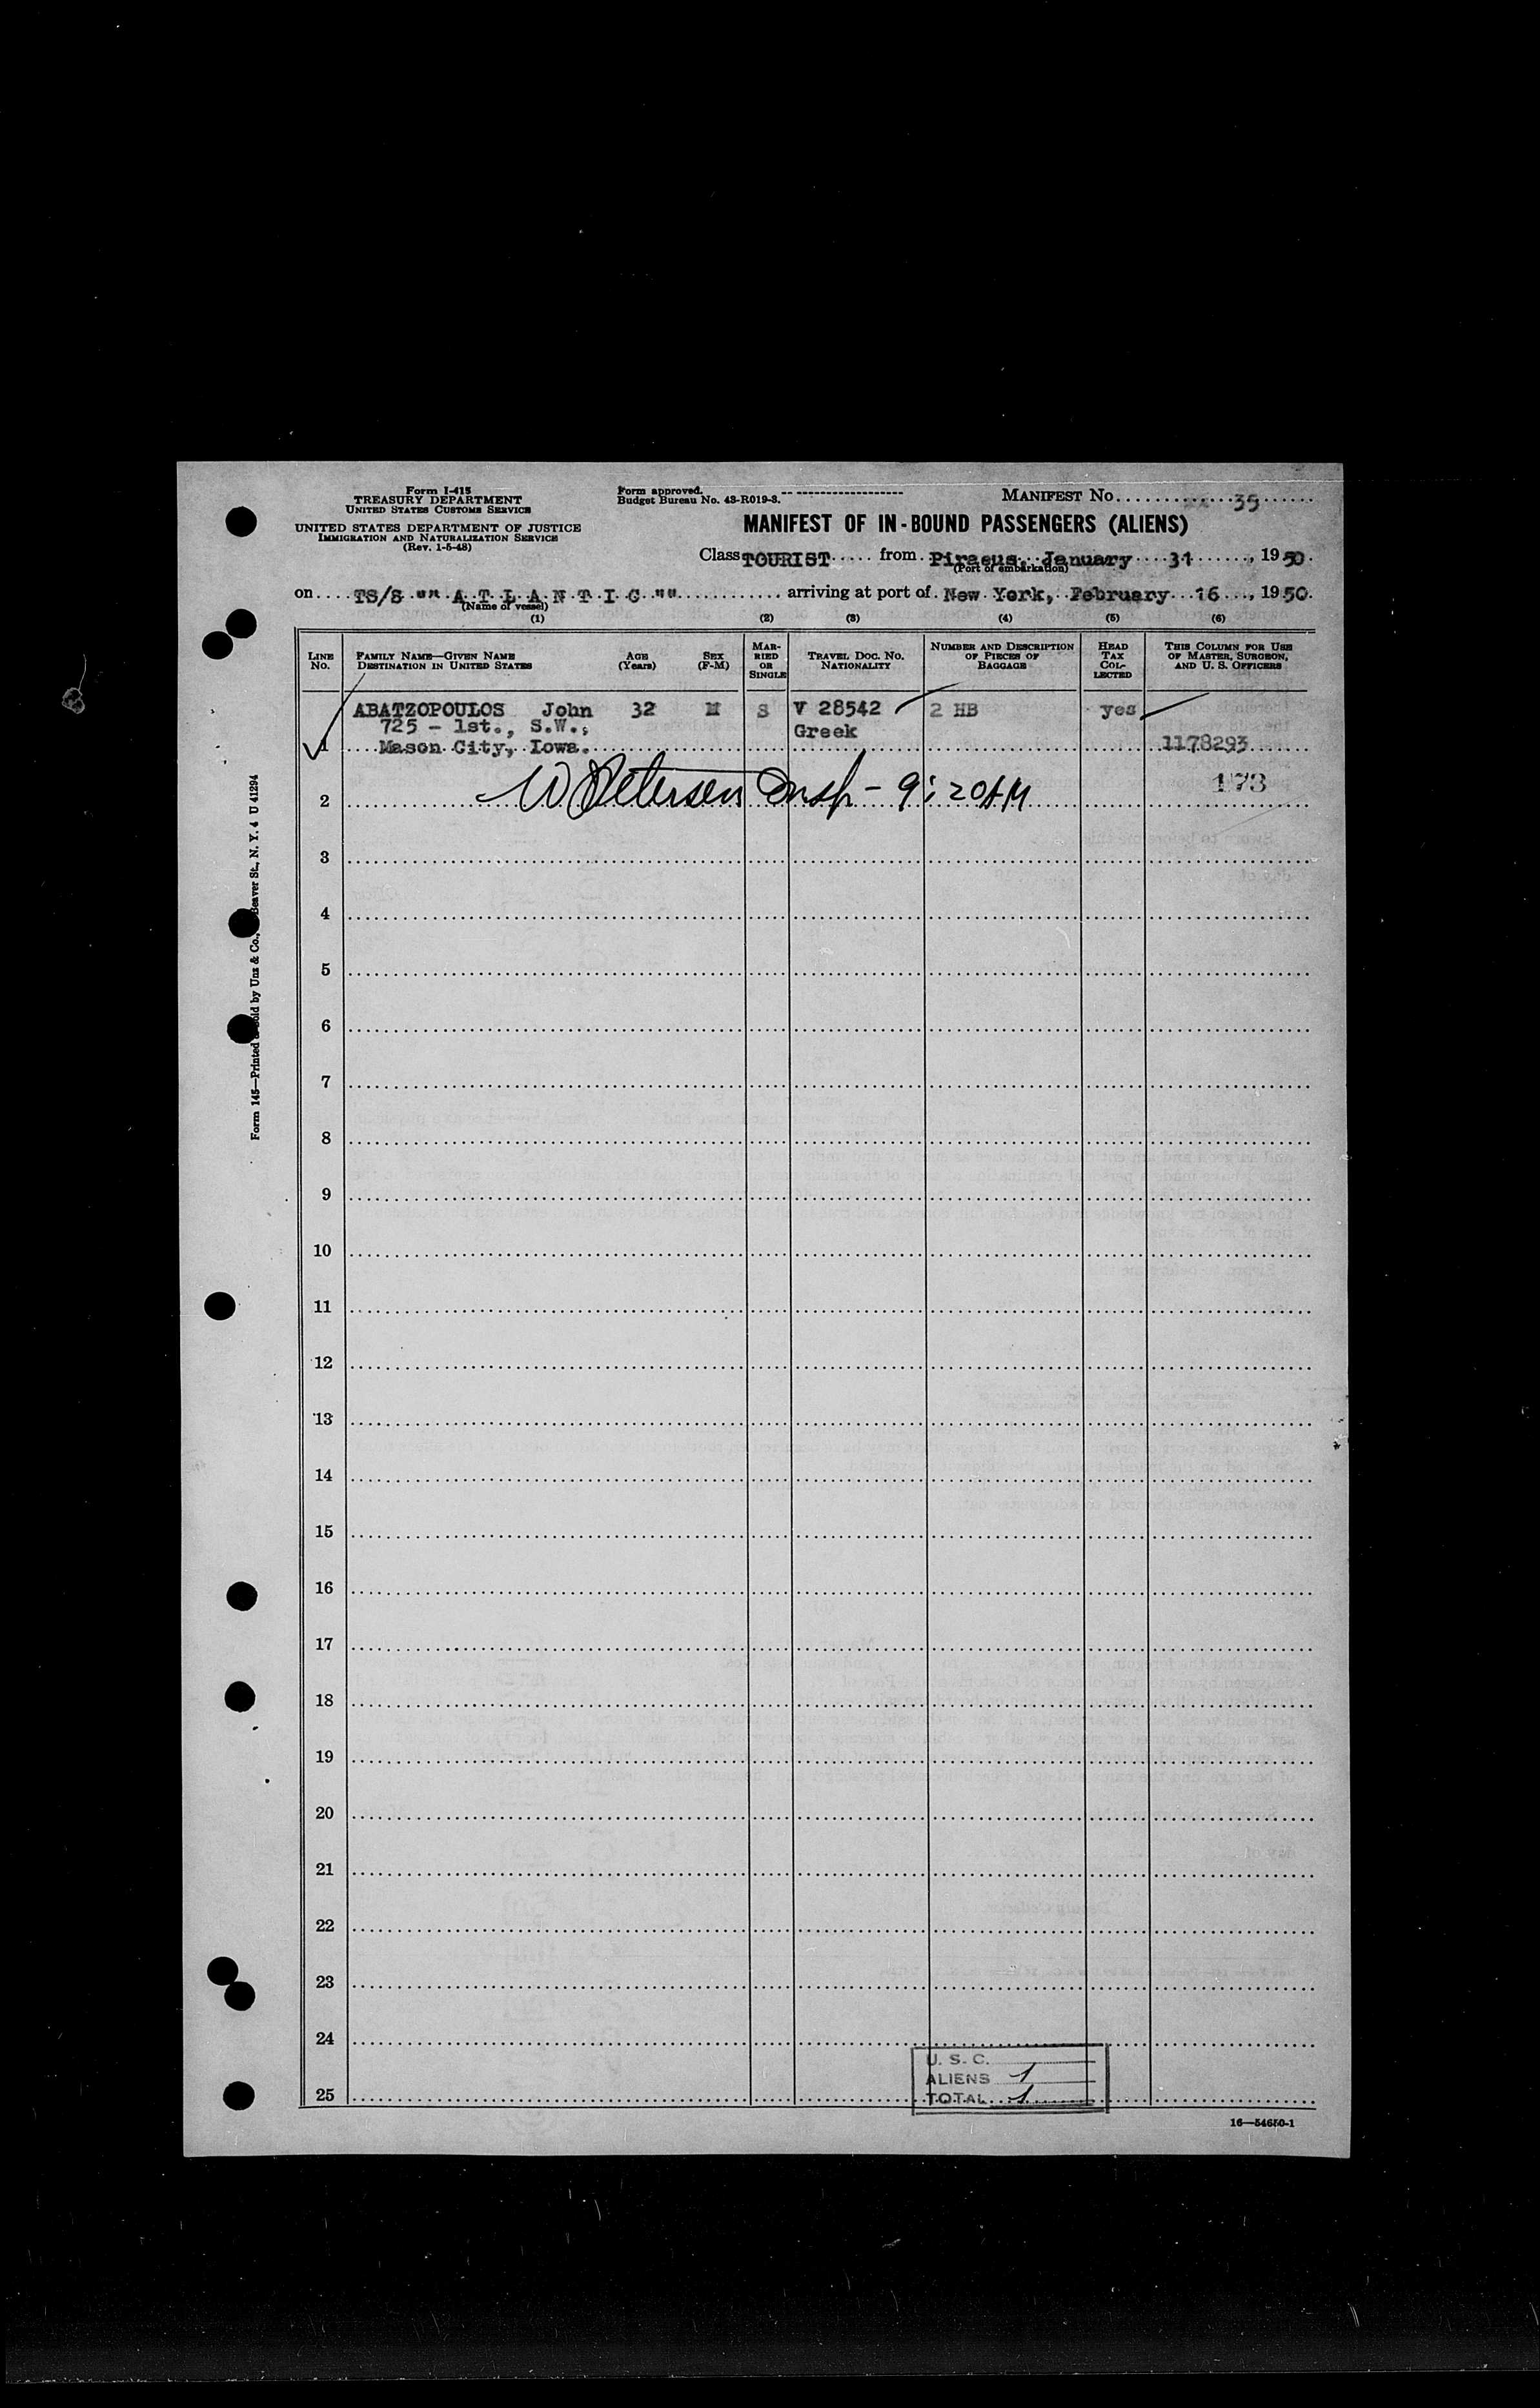 Form I-415
TREASURY DEPARTMENT
UNITED STATES CUSTOMS SERVICE
UNITED STATES DEPARTMENT OF JUSTICE
IMMIGRATION AND NATURALIZATION SERVICE
(Rev. 1-5-48)
Form approved.
Budget Bureau No. 43-R019-3.
MANIFEST NO. 35
MANIFEST OF IN-BOUND PASSENGERS (ALIENS)
Class TOURIST from Piraeus, January 31, 1950.
(Port of embarkation)
on TS/S "" A T L A N T I C "" arriving at port of New York, February 16, 1950.
(Name of vessel)
(1) (2) (3) (4) (5) (6)
LINE NO. FAMILY NAME—GIVEN NAME DESTINATION IN UNITED STATES AGE (Years) SEX (F-M) MARRIED OR SINGLE TRAVEL DOC. NO. NATIONALITY NUMBER AND DESCRIPTION OF PIECES OF BAGGAGE HEAD TAX COLLECTED THIS COLUMN FOR USE OF MASTER, SURGEON, AND U. S. OFFICERS
ABATZOPOULOS John 32 M S V 28542 2 HB yes
725 - 1st., S.W., Greek
1 Mason City, Iowa. 1178293
173
2 W Petersen Insp - 9:20AM
3
4
5
6
7
8
9
10
11
12
13
14
15
16
17
18
19
20
21
22
23
24
U. S. C.
ALIENS 1
25 TOTAL 1
16—54650-1
Form 145—Printed & Sold by Unz & Co., Beaver St., N. Y. 4 U 41294